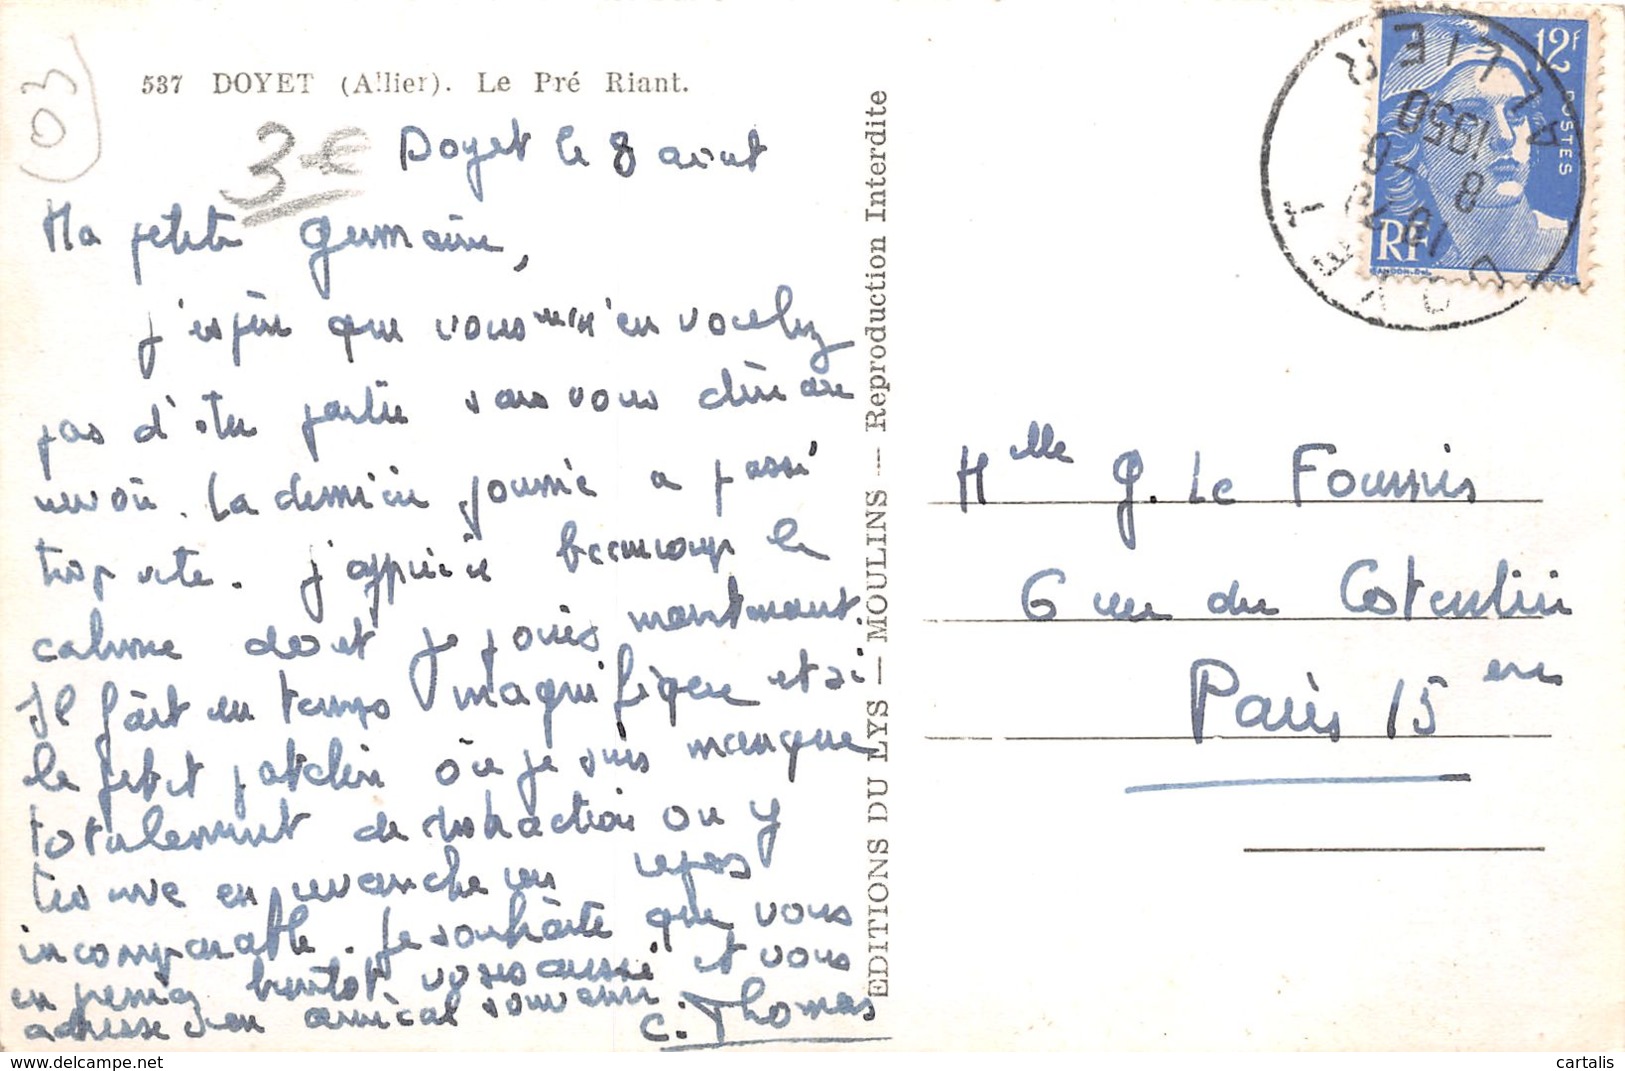 (03)
537 DOYET (Allier). Le Pré Riant.
3 €
Doyet le 8 aout
Ma petite Germaine,
J'espère que vous ne m'en voulez
pas d'être partie sans vous dire au
revoir. La dernière journée a passé
trop vite. J'apprécie beaucoup le
calme dont je jouis maintenant.
Il fait un temps magnifique et si
le petit patelin où je suis manque
totalement de distraction on y
trouve en revanche un repos
incomparable. Je souhaite que vous
en preniez bientôt vous aussi et vous
adresse mon amical souvenir
C. Thomas
EDITIONS DU LYS — MOULINS — Reproduction Interdite
12F
POSTES
RF
GANDON
DOYET
ALLIER
18
8
1950
Mlle G. Le Fournis
6 rue du Cotentin
Paris 15 eme
cartalis.com